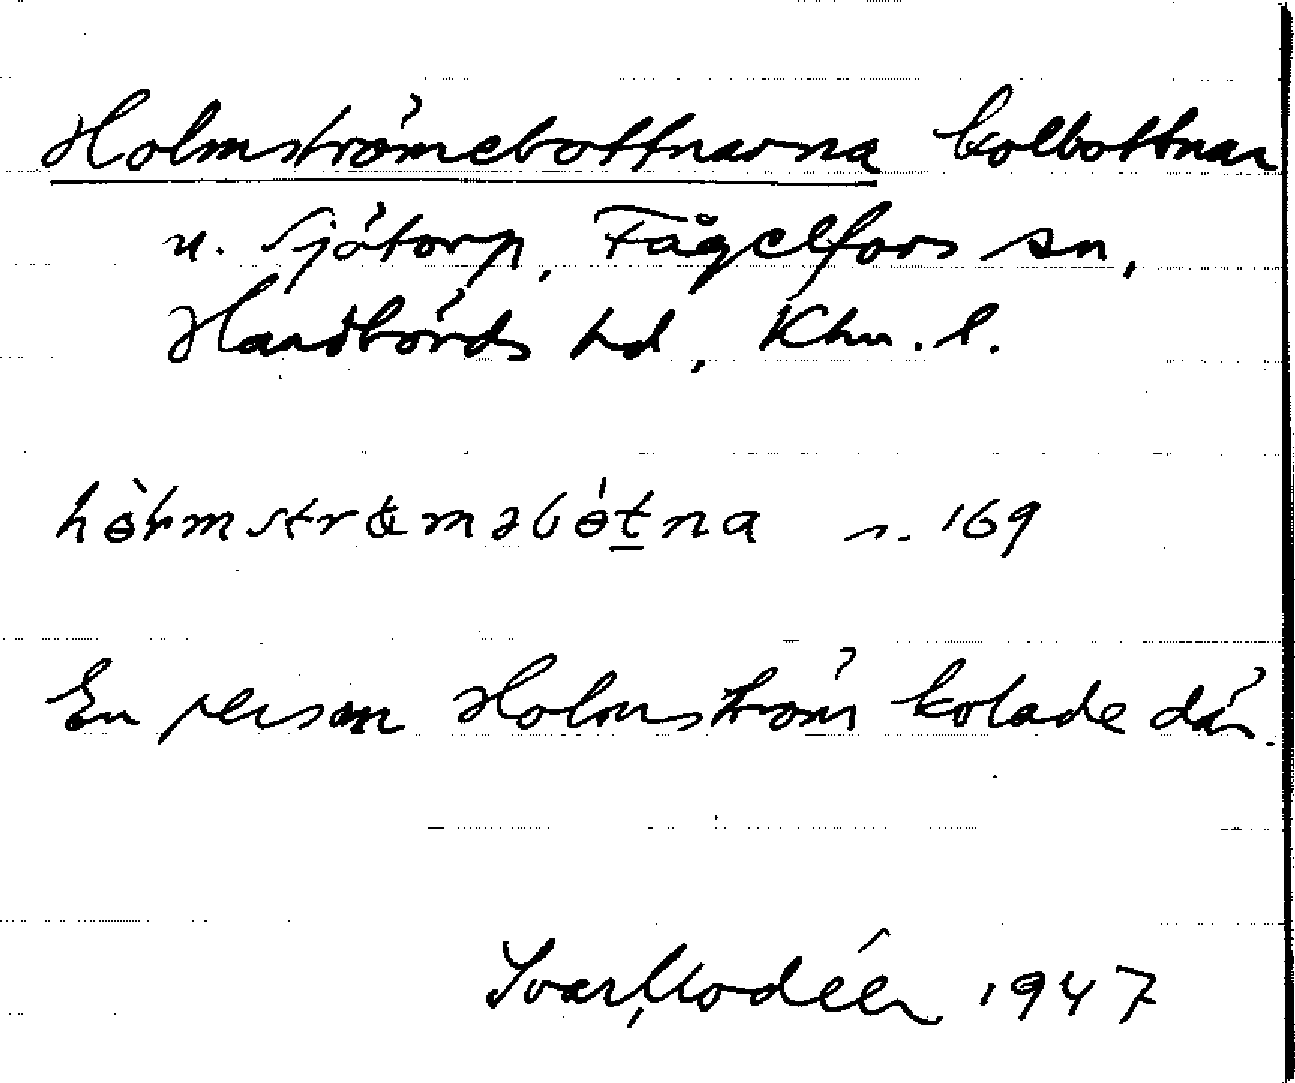 Holmströmebottnarna kolbottnar
u. Sjötorp, Fågelfors sn,
Handbörds hd, Klm. l.
En person Holmström kolade där.
Ivar Modéer 1947